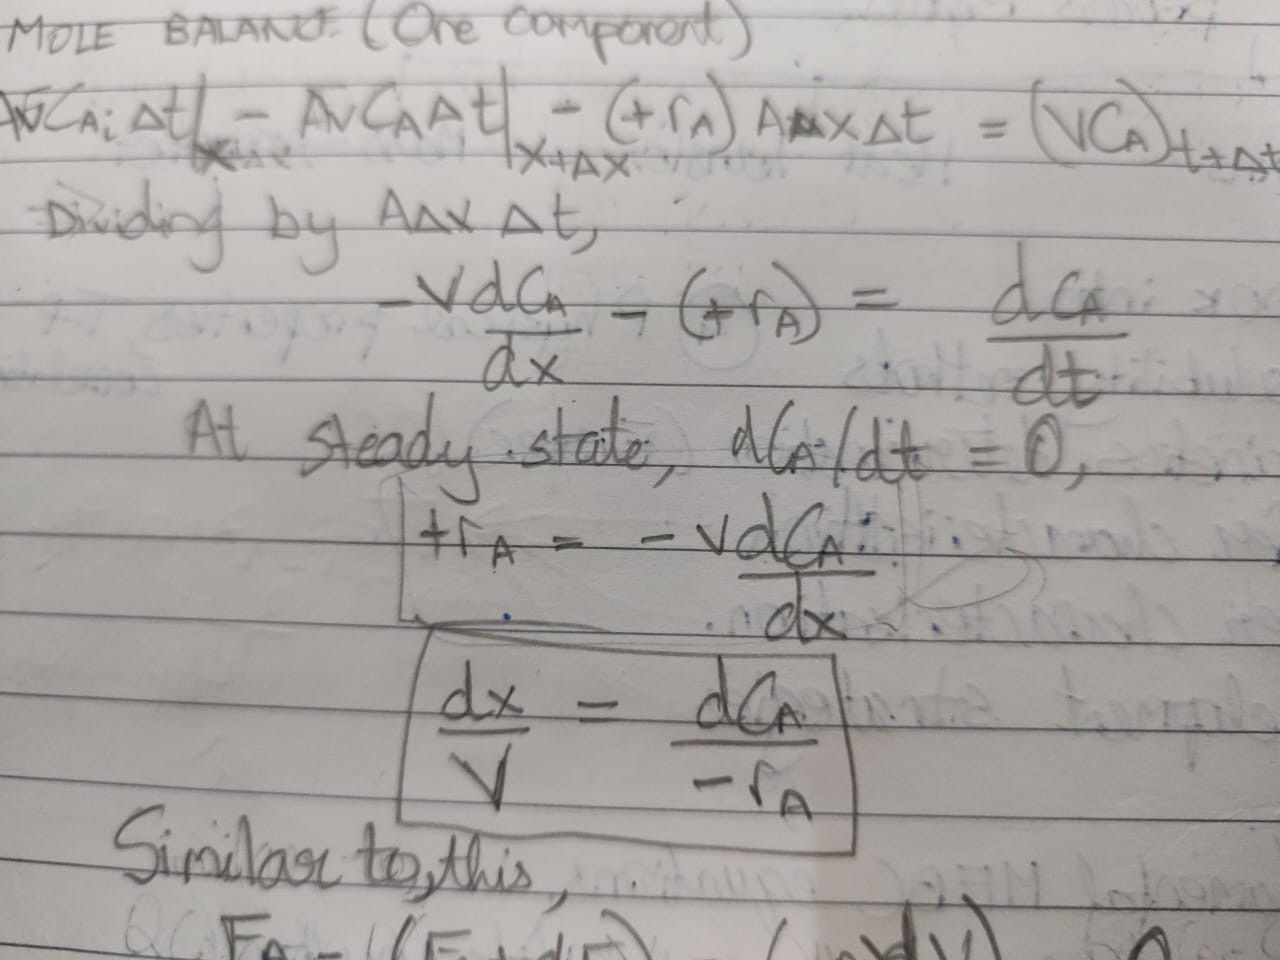 MOLE BALANCE (One component)
AVCAi Δt|x - AVCAΔt|x+Δx - (+rA) AΔxΔt = (VCA)t+Δt
Dividing by AΔx Δt,
-VdCA/dx - (+rA) = dCA/dt
At steady state, dCA/dt = 0,
+rA = -VdCA/dx
dx/V = dCA/-rA
Similar to, this,
FA - (F